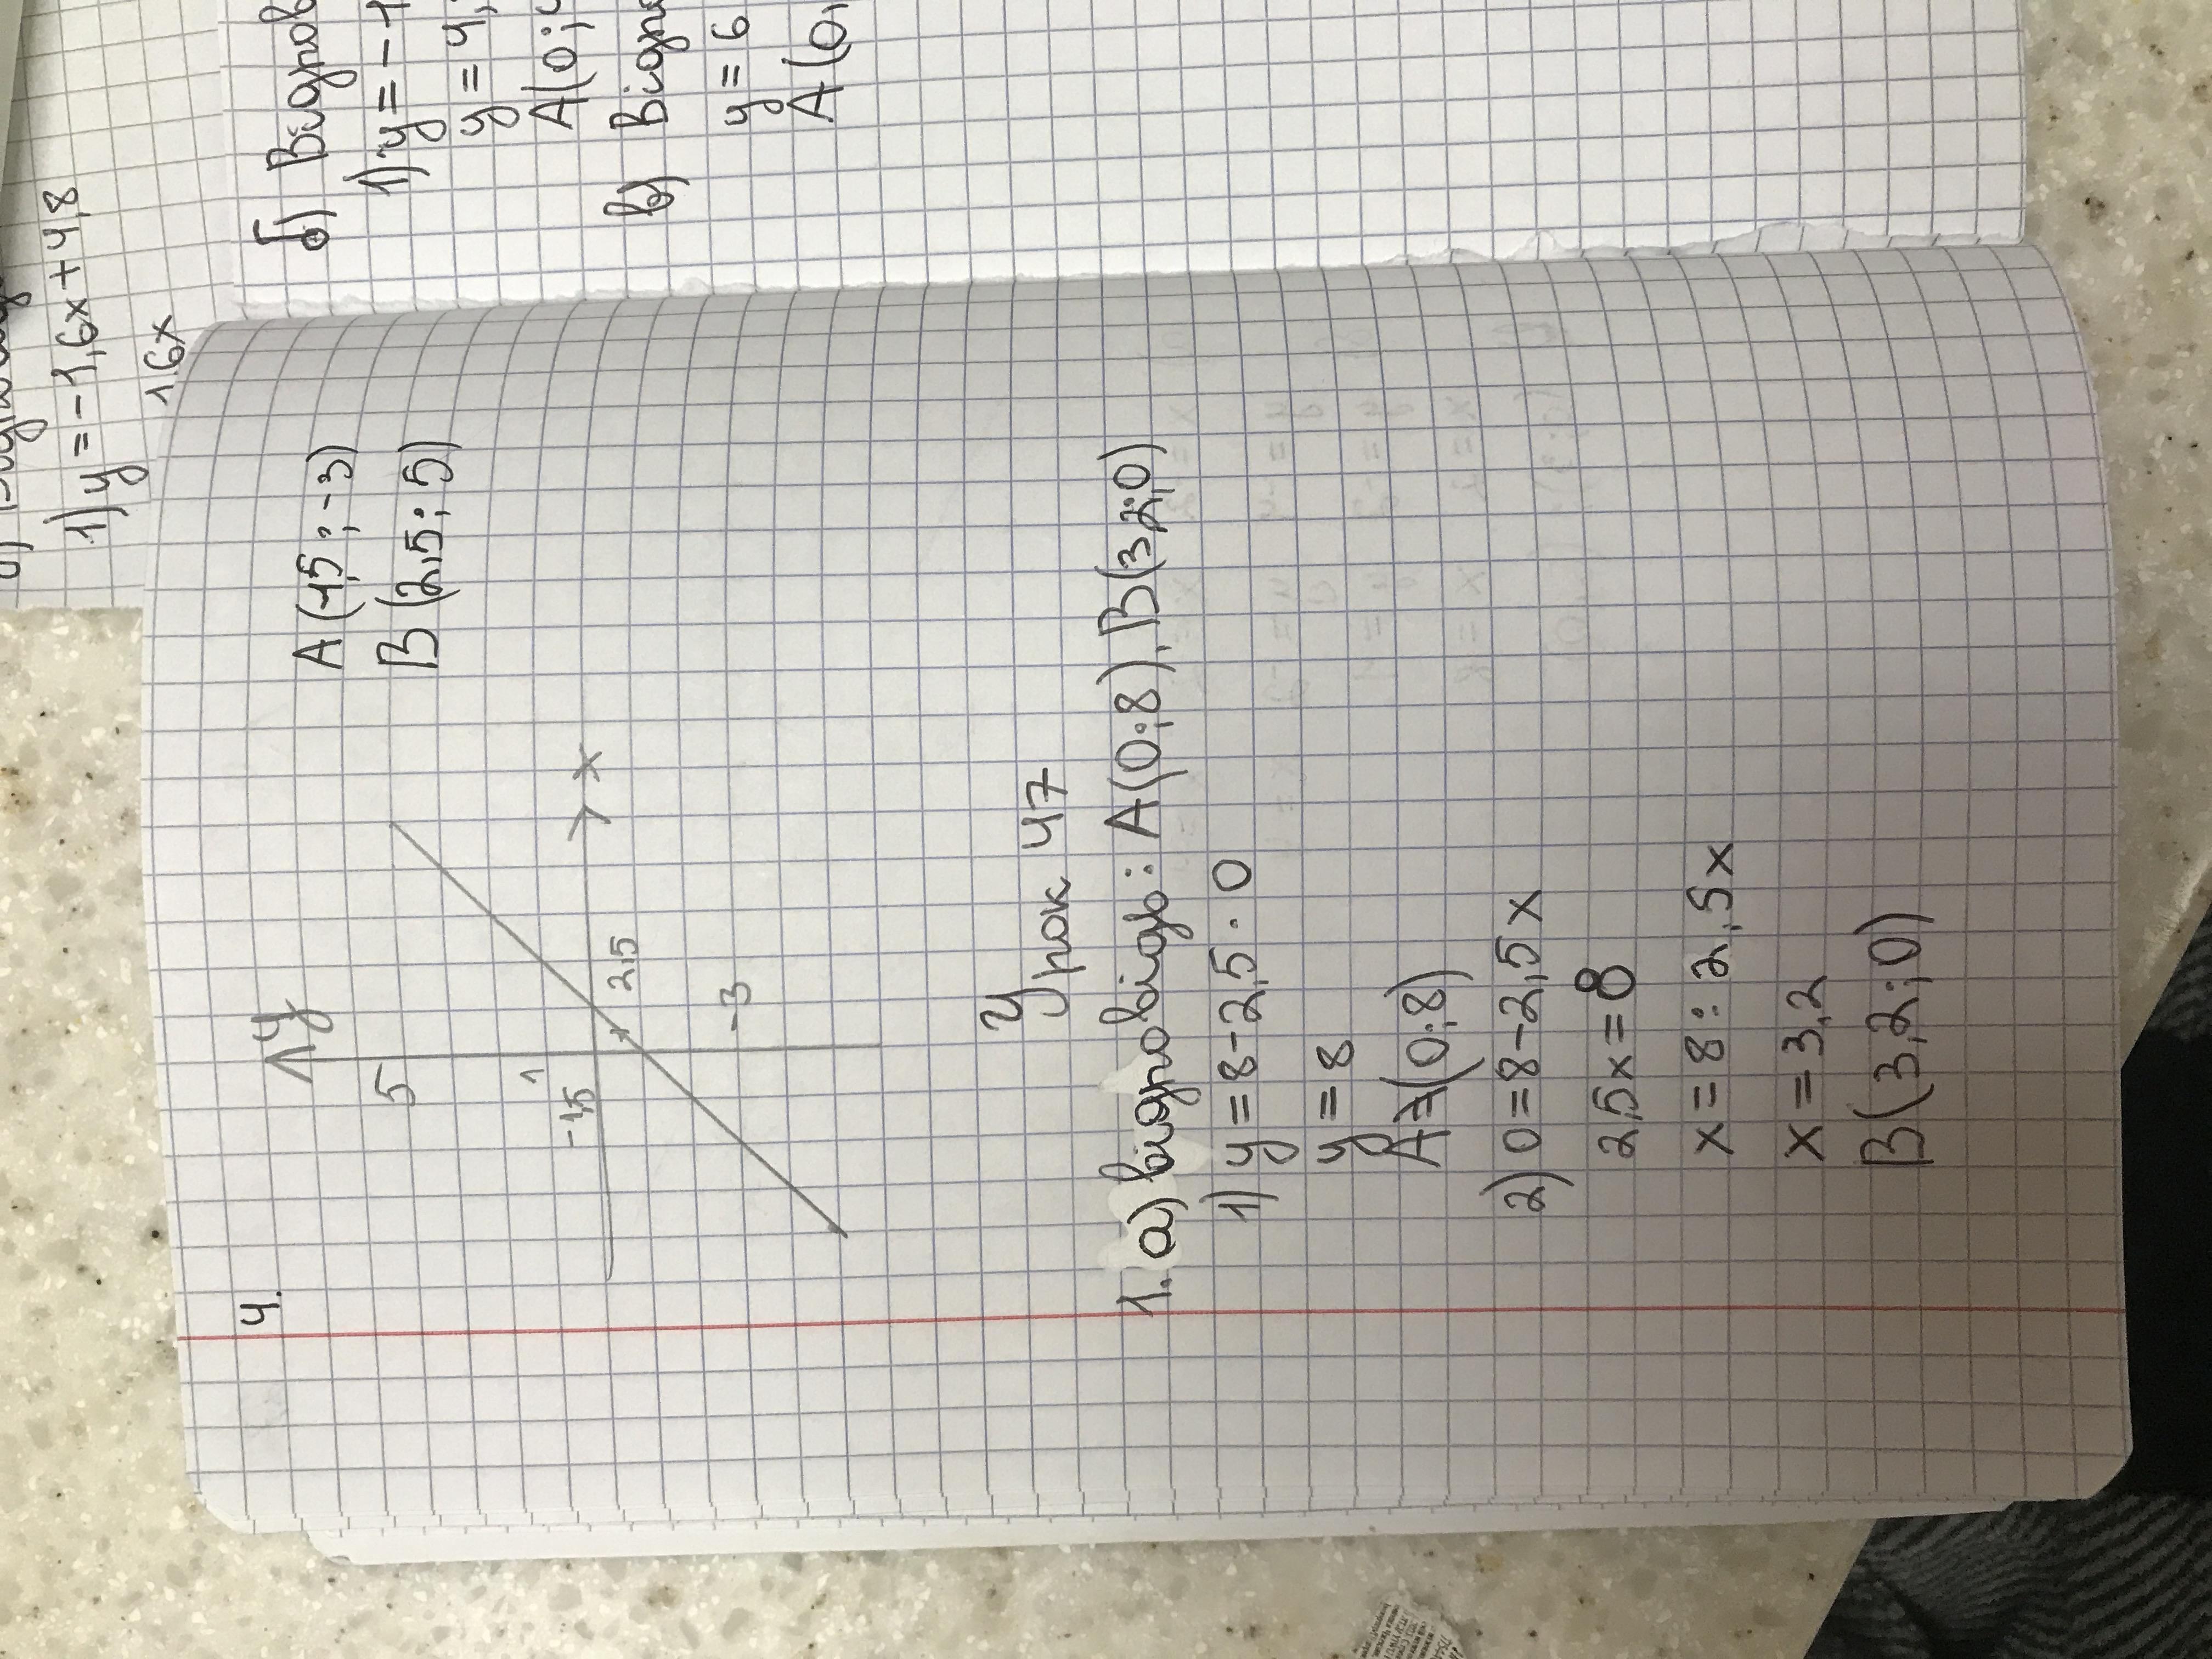 4.
y
5
1
-1,5
2,5
x
-3
A(-1,5; -3)
B(2,5; 5)
Урок 47
1. а) відповідь: A(0;8), B(3,2;0)
1) y = 8 - 2,5 · 0
y = 8
A (0;8)
2) 0 = 8 - 2,5x
2,5x = 8
x = 8 : 2,5x
x = 3,2
B(3,2;0)
1) y = -1,6x + 4,8
1,6x
б) Відпов
1) y = -1
y = 4,
A(0;4
в) Відпов
y = 6
A(0;